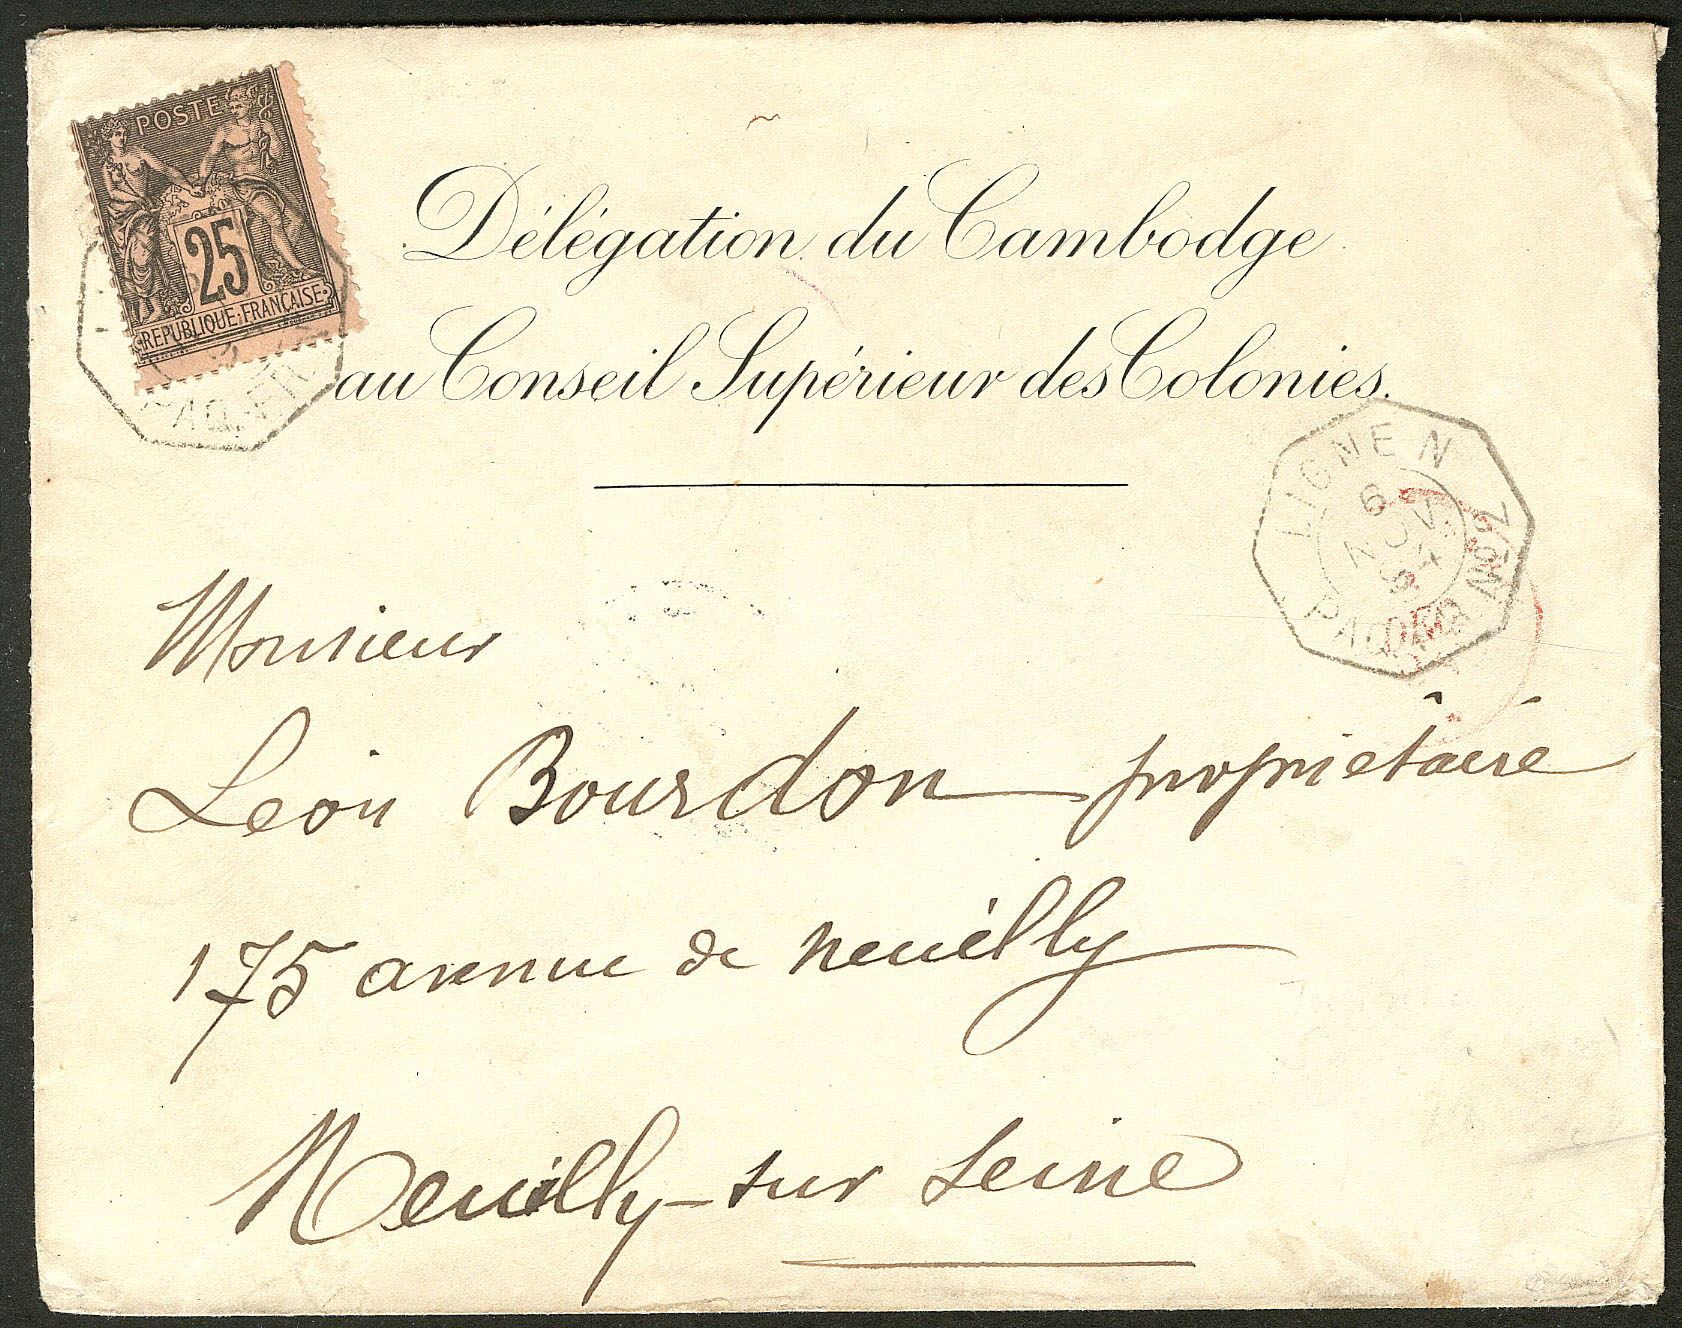 POSTES
25
REPUBLIQUE FRANÇAISE
Délégation du Cambodge
au Conseil Supérieur des Colonies.
LIGNE N
PAQ. FR. Nº 2
6
NOV.
94
Monsieur
Léon Bourdon propriétaire
175 avenue de Neuilly
Neuilly-sur Seine